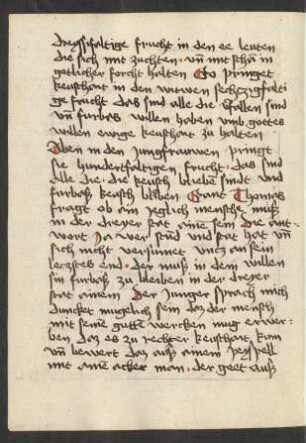 dreyssfaltige frucht in den ee leuten
die sich mit zuchten · vn̄ mit schā in
gotlicher forcht halten So pringet
keuschait in den witwen sechczigfalti
ge frucht das sind alle die gfallen sind
vn̄ furbas willen haben vmb gottes
willen ewige keuschait zu halten
Aber in den Jungfrauwen pringt
sie hundertfaltigen frucht · das sind
alle die · die keusch blibē sindt · vnd
furbaß keusch bliben Sant Thomas
fragt ob ain yeglich mensche muß
in der dreyer stat aine sein Die ant-
wort Ja wer stund vnd stat hat vn̄
sich nicht versumet vncz an sein
leczstes end · der muß in dem willen
sin furbaß zu bleiben in der dreyer
stat ainem Der Junger sprach mich
duncket muglich sein daz der mensch
mit seine guttē wercken mug erwer-
ben daz es zu rechter keuschait kom
vn̄ bewert daz auß ainem peyspell
mit aine acker man · der geet auß